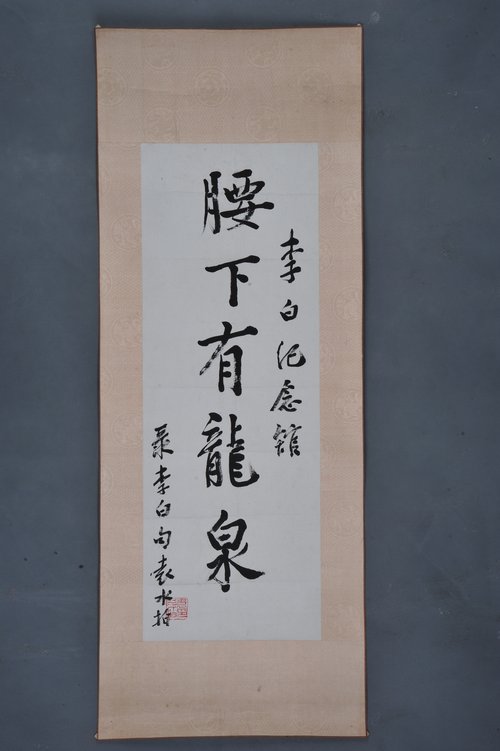 李白纪念馆
腰下有龍泉
录李白句袁水拍